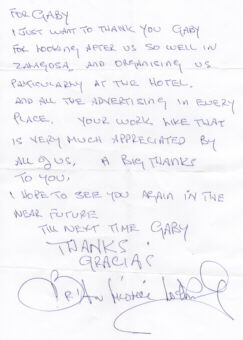 FOR GABY
I JUST WANT TO THANK YOU GABY
FOR LOOKING AFTER US SO WELL IN
ZARAGOSA, AND ORGANISING US
PARTICULARLY AT THE HOTEL.
AND ALL THE ADVERTISING IN EVERY
PLACE. YOUR WORK LIKE THAT
IS VERY MUCH APPRECIATED BY
ALL OF US, A BIG THANKS
TO YOU,
I HOPE TO SEE YOU AGAIN IN THE
NEAR FUTURE
TILL NEXT TIME GABY
THANKS
GRACIAS